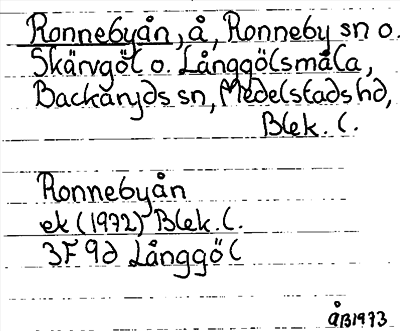 Ronnebyån, å, Ronneby sn o.
Skärvgöl o. Långgölsmåla,
Backaryds sn, Medelstads hd,
Blek. l.
Ronnebyån
ek (1972) Blek. l.
3F 9d Långgöl
ÅB1973